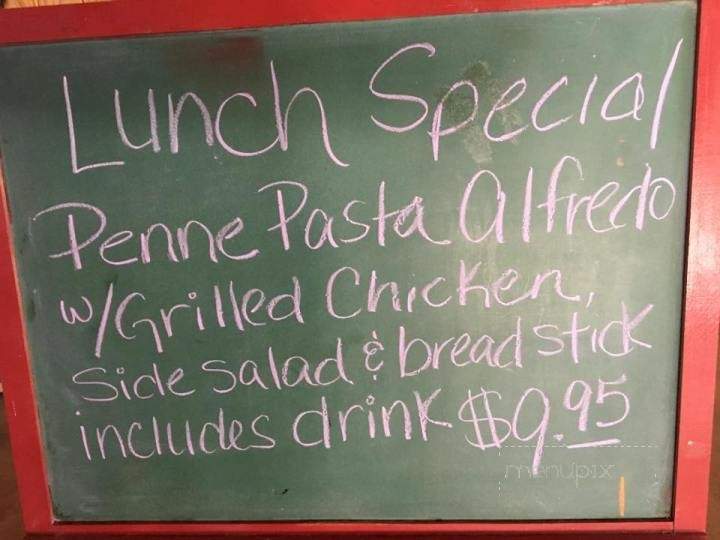 Lunch Special
Penne Pasta Alfredo
w/Grilled Chicken,
Side Salad & bread stick
includes drink $9.95
menupix